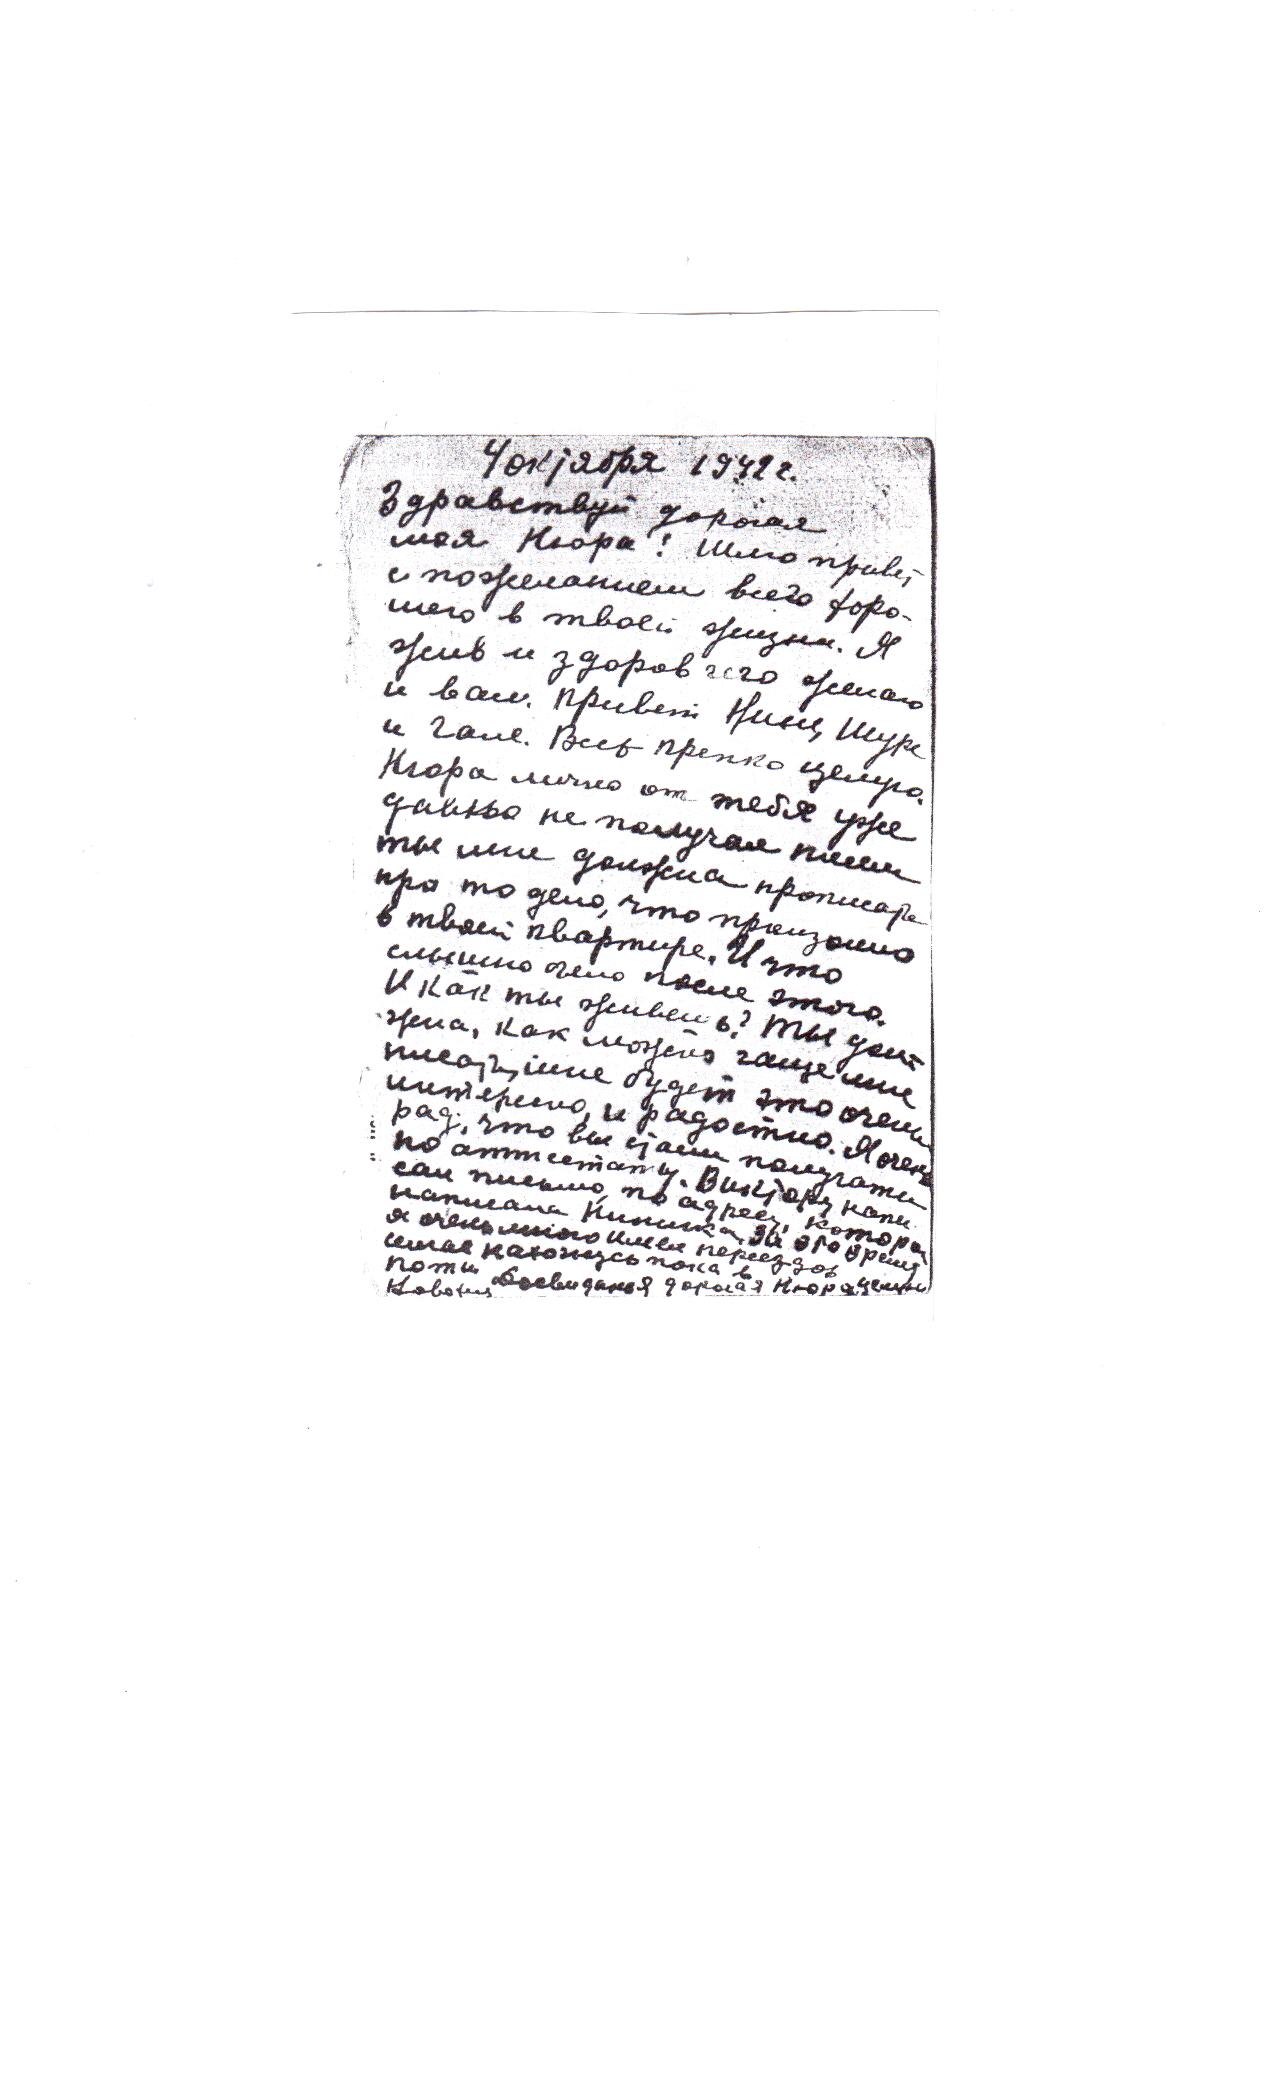 4 октября 1942 г.
Здравствуй дорогая
моя Нюра! Шлю привет
с пожеланием всего хоро-
шего в твоей жизни. Я
жив и здоров чего желаю
и вам. Привет Нине, Шуре
и Гале. Всех крепко целую.
Нюра лично от тебя уже
давно не получал писем
ты мне должна прописать
про то дело, что произошло
в твоей квартире. И что
слышно было после этого.
И как ты живешь? Ты долж
жна, как можно чаще мне
писать, мне будет это очень
интересно, и радостно. Я очень
рад, что вы стали получать
по аттестату. Виктору напи
сал письмо, по адресу, который
написала Нинка, за это время
я очень много имел переездов
сейчас нахожусь пока в
Досвиданья дорогая Нюра целую